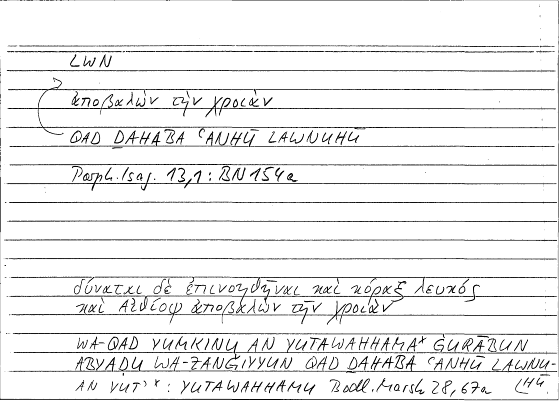 LWN
ἀποβαλὼν τὴν χροιάν
QAD ḎAHABA ʿANHŪ LAWNUHŪ
Porph. Isag. 13,1 : BN 154a
δύναται δὲ ἐπινοηθῆναι καὶ κόραξ λευκὸς
καὶ Αἰθίοψ ἀποβαλὼν τὴν χροιάν
WA-QAD YUMKINU AN YUTAWAHHAMAˣ ĠURĀBUN
ABYAḌU WA-ZANǦIYYUN QAD ḎAHABA ʿANHŪ LAWNU-
AN YUT’ˣ : YUTAWAHHAMU Bodl. Marsh 28, 67a (HŪ